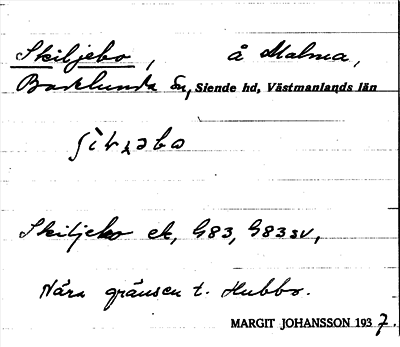 Skiljebo, å Malma,
Barklunda sn, Siende hd, Västmanlands län
Skiljebo ek, G83, G83 sv,
Nära gränsen t. Hubbo.
MARGIT JOHANSSON 1937.